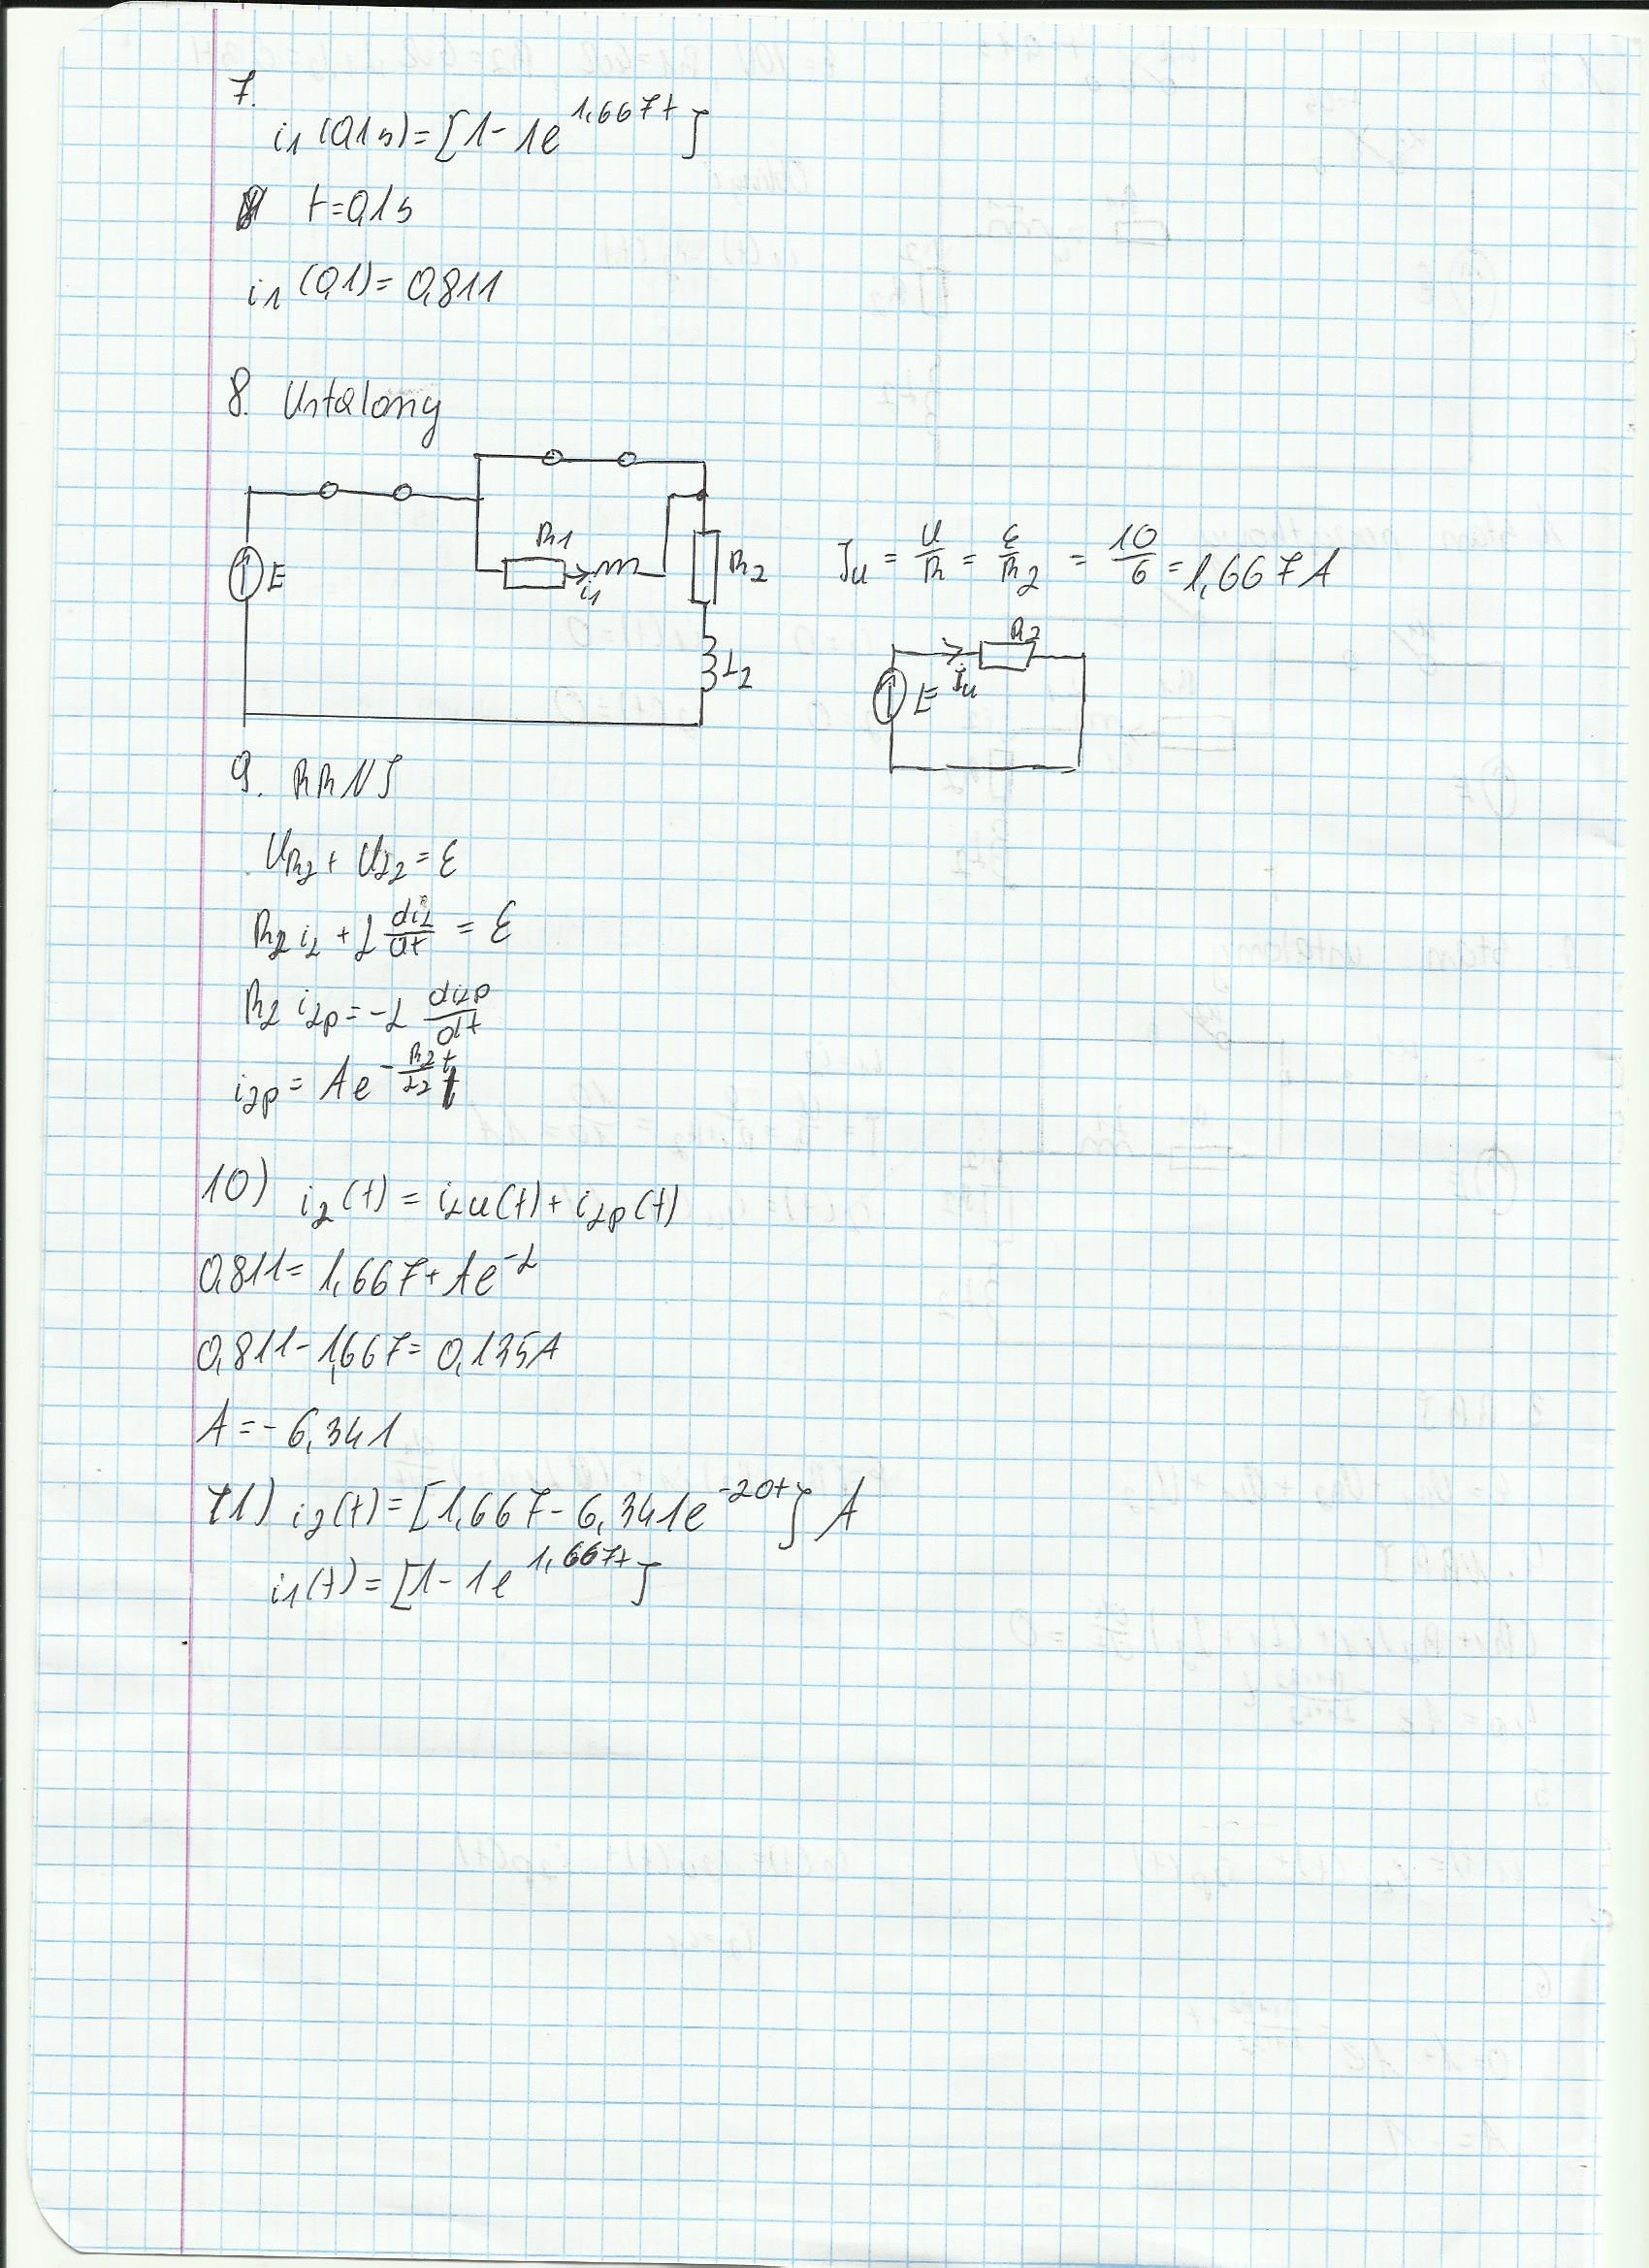 7.
i1 (0,1s) = [1 - 1e^1,667t]
t = 0,1s
i1 (0,1) = 0,811
8. Ustalony
R1
E
i1
R2
L2
Iu = U/R = E/R2 = 10/6 = 1,667A
R2
E Iu
9. RRNJ
UR2 + UL2 = E
R2 i2 + L di2/dt = E
R2 i2p = -L di2p/dt
i2p = Ae^-R2/L2 t
10) i2(t) = i2u(t) + i2p(t)
0,811 = 1,667 + Ae^-2
0,811 - 1,667 = 0,135A
A = -6,341
11) i2(t) = [1,667 - 6,341e^-20t] A
i1(t) = [1 - 1e^1,667t]